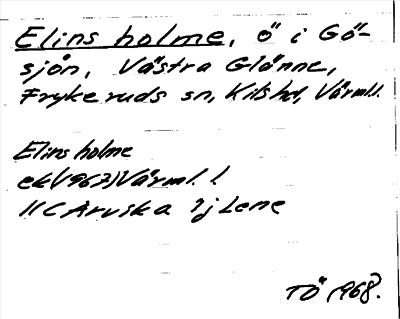 Elins holme, ö i Gö-
sjön, Västra Glänne,
Frykeruds sn, Kils hd, Värml.l.
Elins holme
ek (1967) Värml. l.
11C Arvika 2j Lene
TÖ 1968.